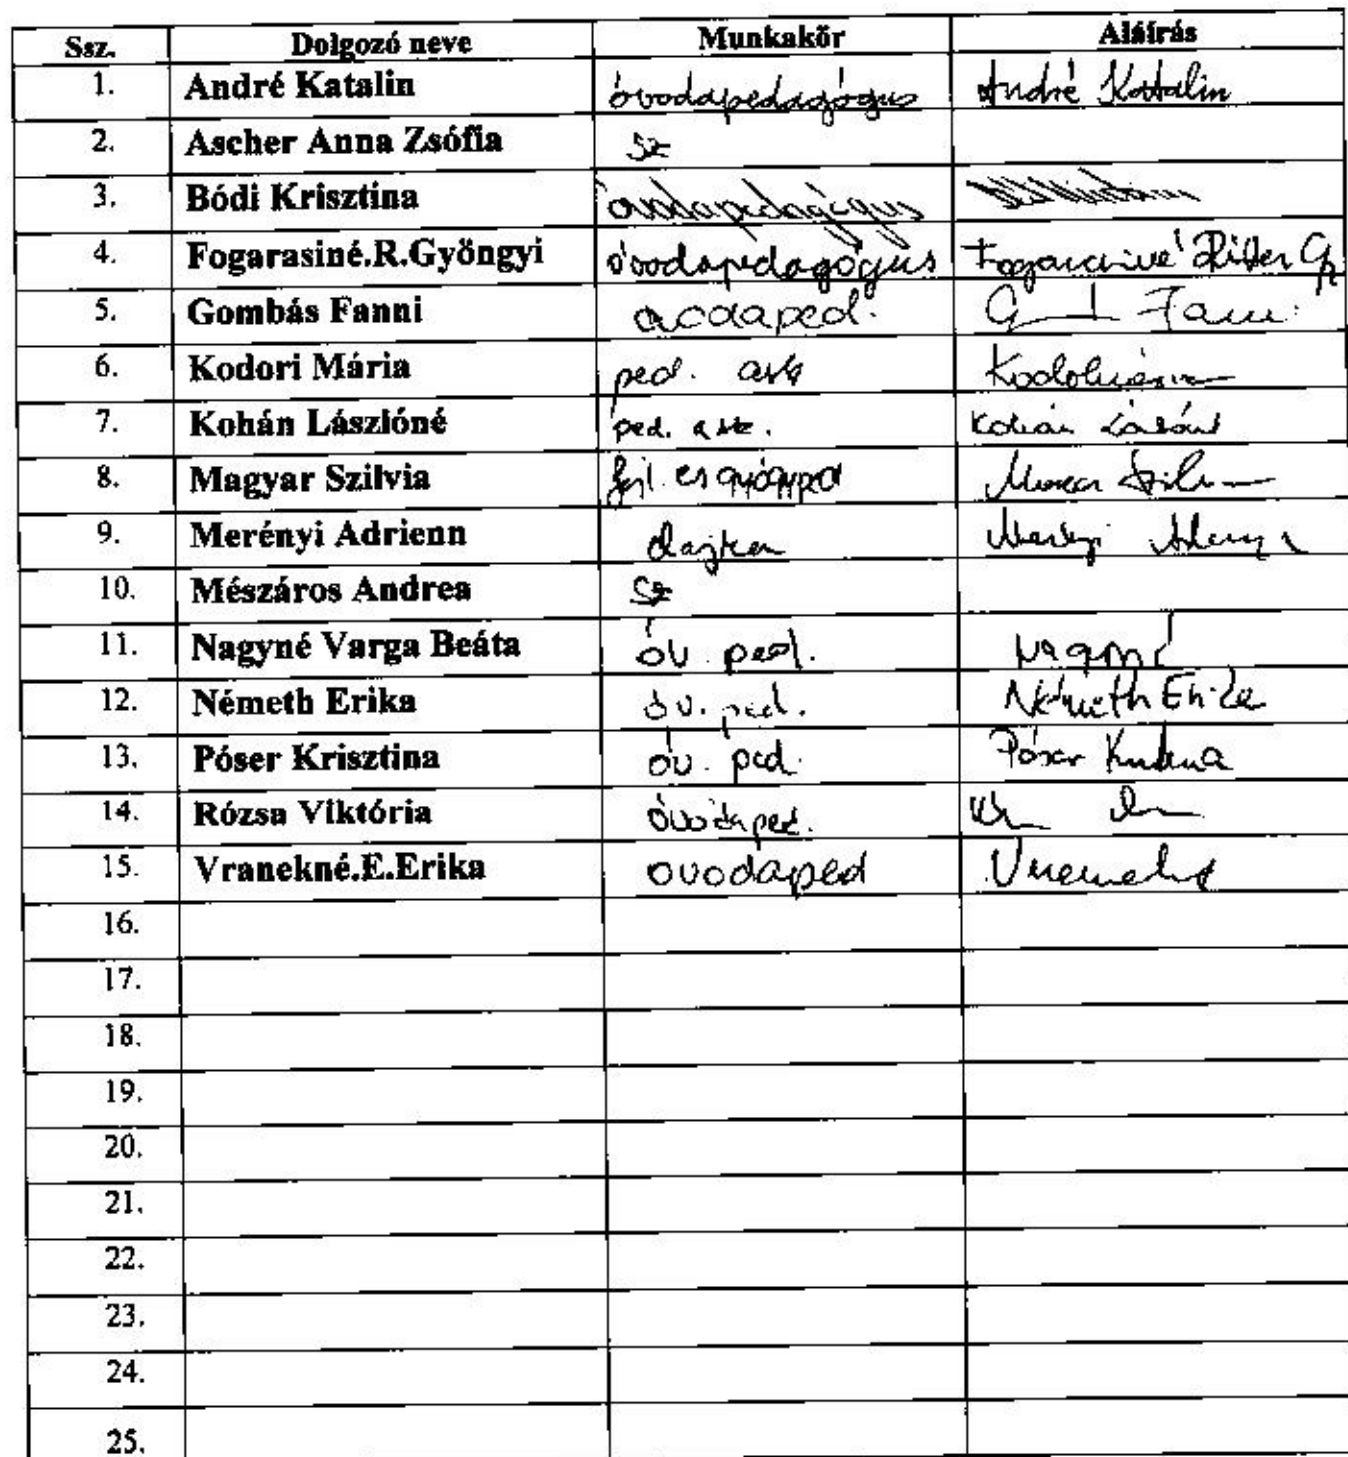 Ssz. Dolgozó neve Munkakör Aláírás
1. André Katalin óvodapedagógus André Katalin
2. Ascher Anna Zsófia Sz
3. Bódi Krisztina óvodapedagógus
4. Fogarasiné.R.Gyöngyi óvodapedagógus Fogarasiné
5. Gombás Fanni óvodaped. G Fanni
6. Kodori Mária ped. assz
7. Kohán Lászlóné ped. assz. Kohán
8. Magyar Szilvia fejl. és gyógyped
9. Merényi Adrienn dajka
10. Mészáros Andrea Sz
11. Nagyné Varga Beáta óv. ped. Nagyné
12. Németh Erika óv. ped. Németh Erika
13. Póser Krisztina óv. ped. Póser Krisztina
14. Rózsa Viktória óvodaped.
15. Vranekné.E.Erika óvodaped Vranekné
16.
17.
18.
19.
20.
21.
22.
23.
24.
25.